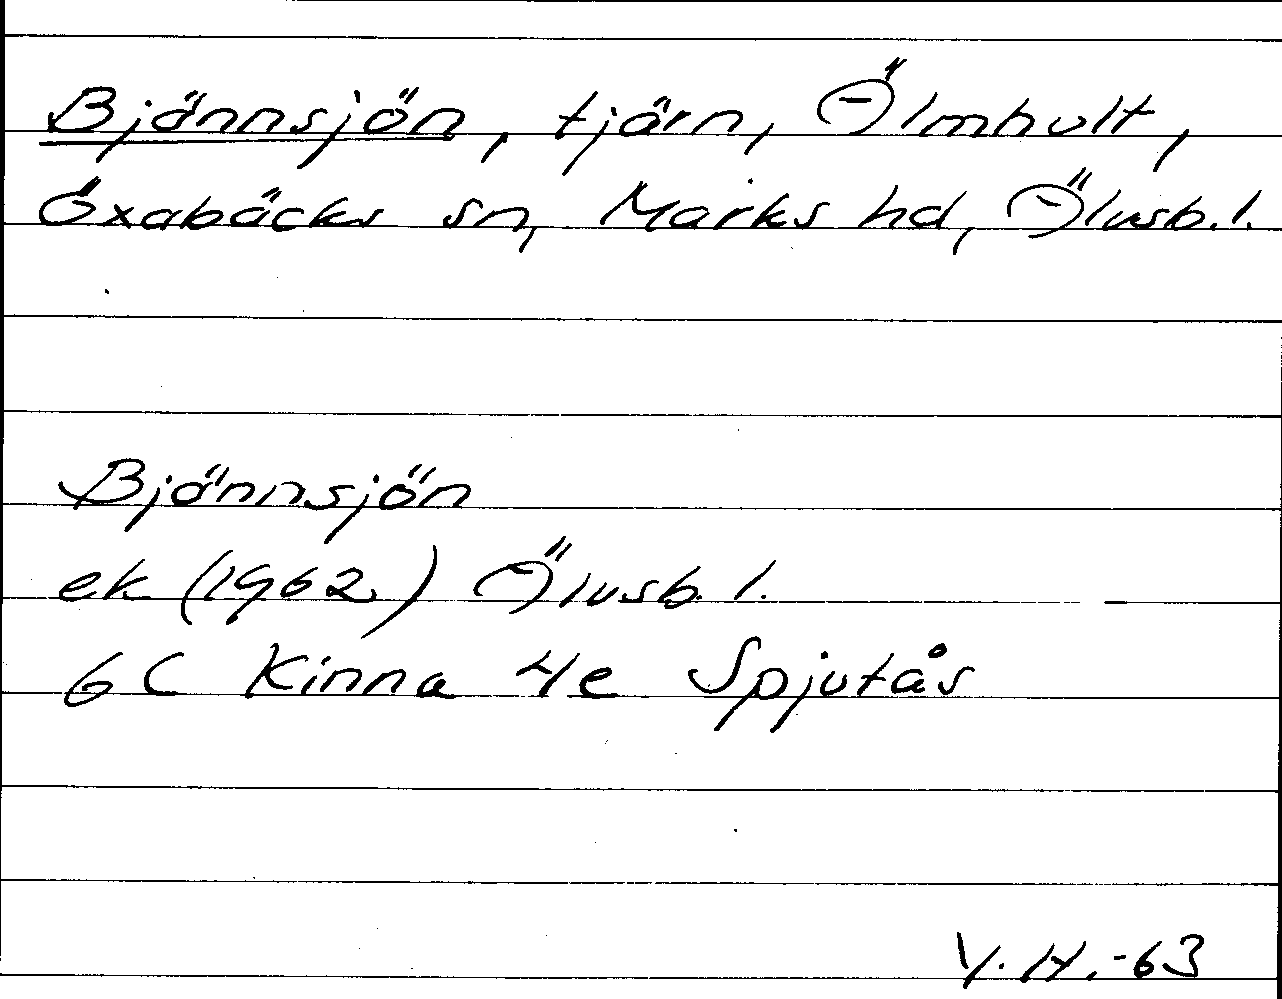 Bjännsjön, tjärn, Älmhult,
Öxabäcks sn, Marks hd, Älvsb. l.
Bjännsjön
ek (1962) Älvsb. l.
6 C Kinna 4e Spjutås
V. H. -63